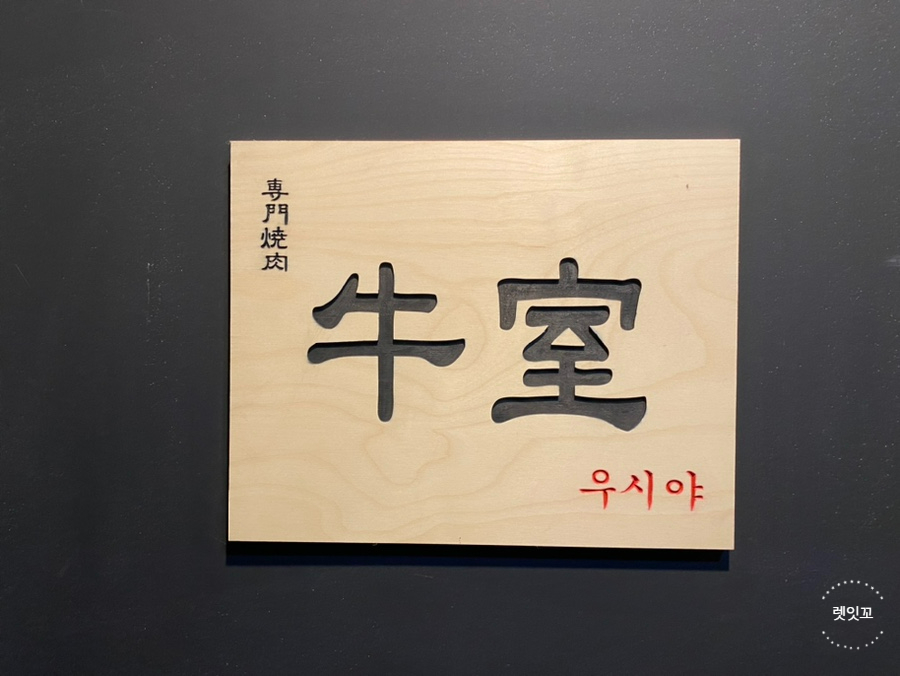 専門焼肉
牛室
우시야
렛잇꼬